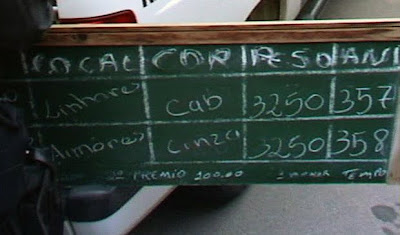 LOCAL COR PESO ANI
Linhares Cab 3250 357
Aimores Cinza 3250 358
2º PREMIO 100.00 1 MENOR TEMPO